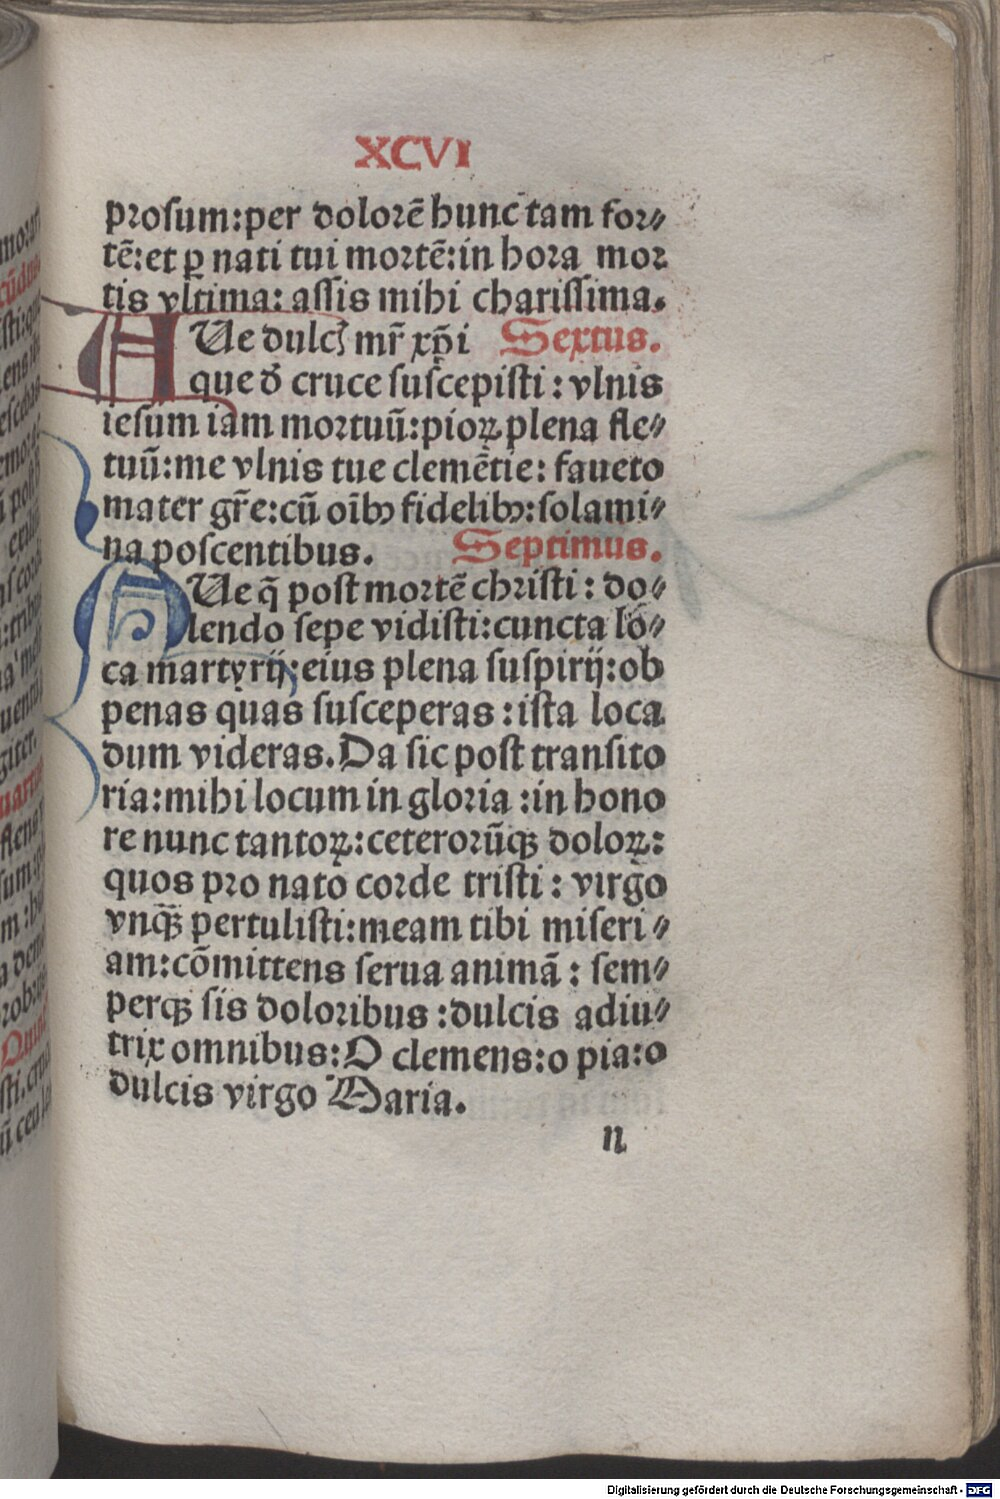 XCVI
prosum:per dolorē hunc tam for⸗
tē:et ꝑ nati tui mortē:in hora mor
tis vltima: assis mihi charissima.
AUe dulcꝭ mr̄ xp̄i Sextus.
que đ cruce suscepisti: vlnis
iesum iam mortuū:pioꝝ plena fle⸗
tuū:me vlnis tue clemētie: faueto
mater gr̄e:cū oībꝰ fidelibꝰ:solami⸗
na poscentibus. Septimus.
AUe q̄ post mortē christi: do⸗
lendo sepe vidisti:cuncta lo⸗
ca martyrij:eius plena suspirij:ob
penas quas susceperas:ista loca
dum videras.Da sic post transito
ria:mihi locum in gloria:in hono
re nunc tantoꝝ:ceterorūqꝫ doloꝝ:
quos pro nato corde tristi: virgo
vnqꝫ̄ pertulisti:meam tibi miseri⸗
am:cōmittens serua animā: sem⸗
perqꝫ sis doloribus:dulcis adiu⸗
trix omnibus:O clemens:o pia:o
dulcis virgo Maria.
n
Digitalisierung gefördert durch die Deutsche Forschungsgemeinschaft - DFG